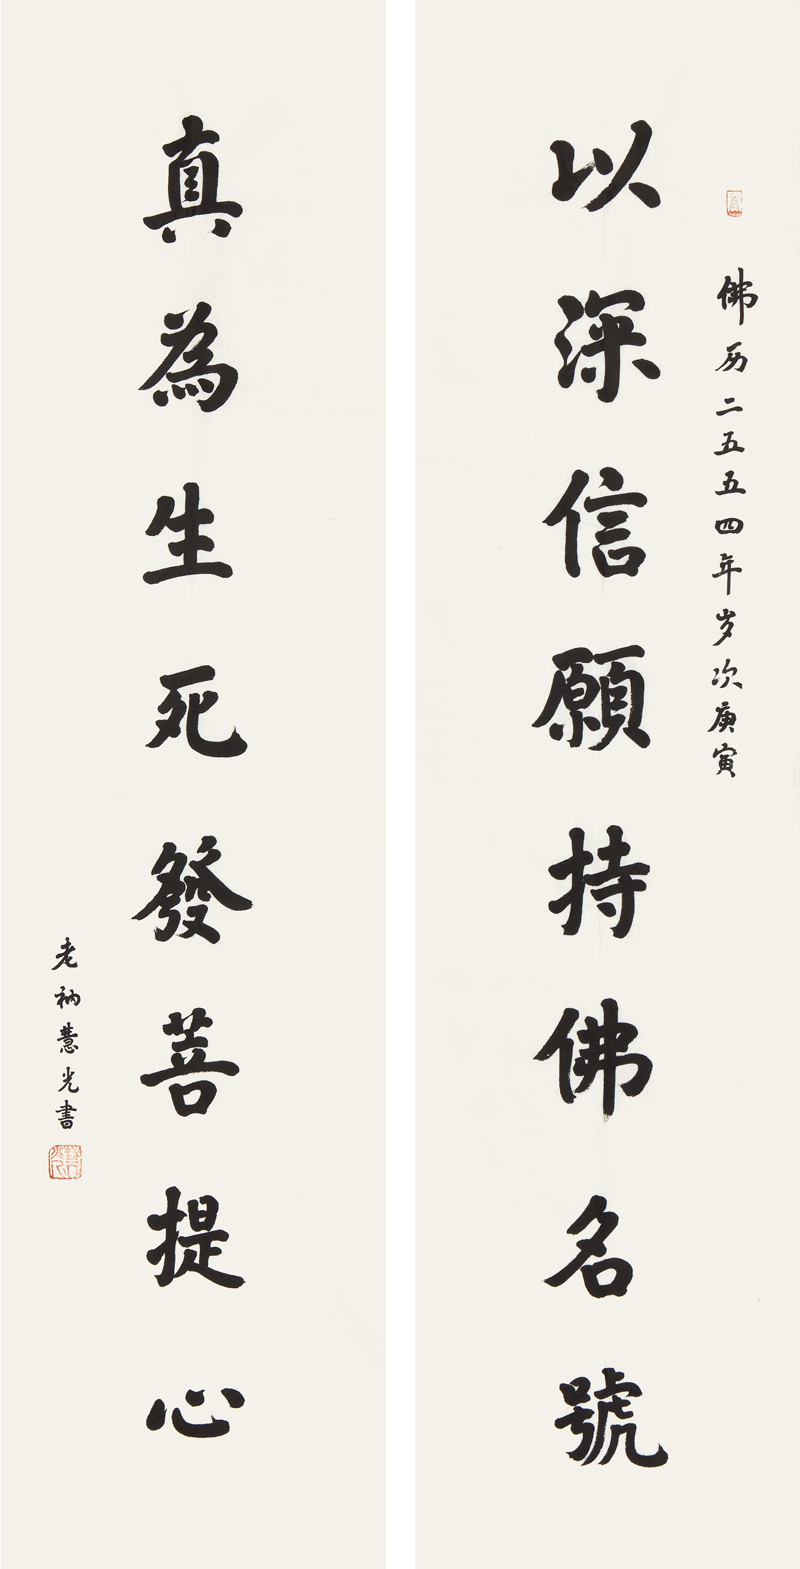 佛历二五五四年岁次庚寅
以深信願持佛名號
真為生死發菩提心
老衲慧光書